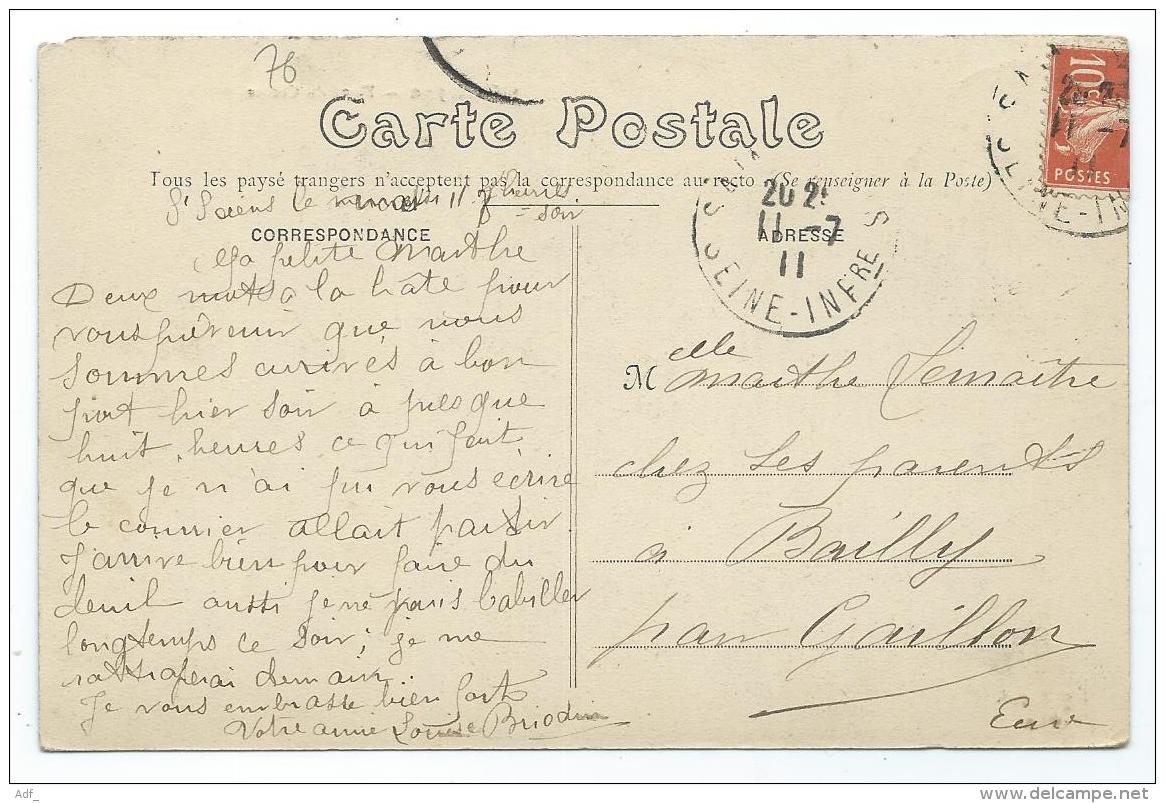 76
Carte Postale
Tous les paysé trangers n'acceptent pas la correspondance au recto (Se renseigner à la Poste)
St Saëns le mercredi 11 7 heures
soir
CORRESPONDANCE
ADRESSE
Ma petite Marthe
Deux mots à la hâte pour
vous prévenir que nous
sommes arrivés à bon
port hier soir à presque
huit heures ce qui fait
que je n'ai pu vous écrire
le courrier allait partir
J'arrive bien pour faire du
deuil aussi je ne puis babiller
longtemps ce soir; je me
rattraperai demain
Je vous embrasse bien fort
Votre amie Louise
M elle Marthe Lemaître
chez ses parents
à Bailly
par Gaillon
Eure
20 2
11 -7
11
SEINE-INFRE
10c
POSTES
11 -7
11
EINE-IN
Adf_
www.delcampe.net